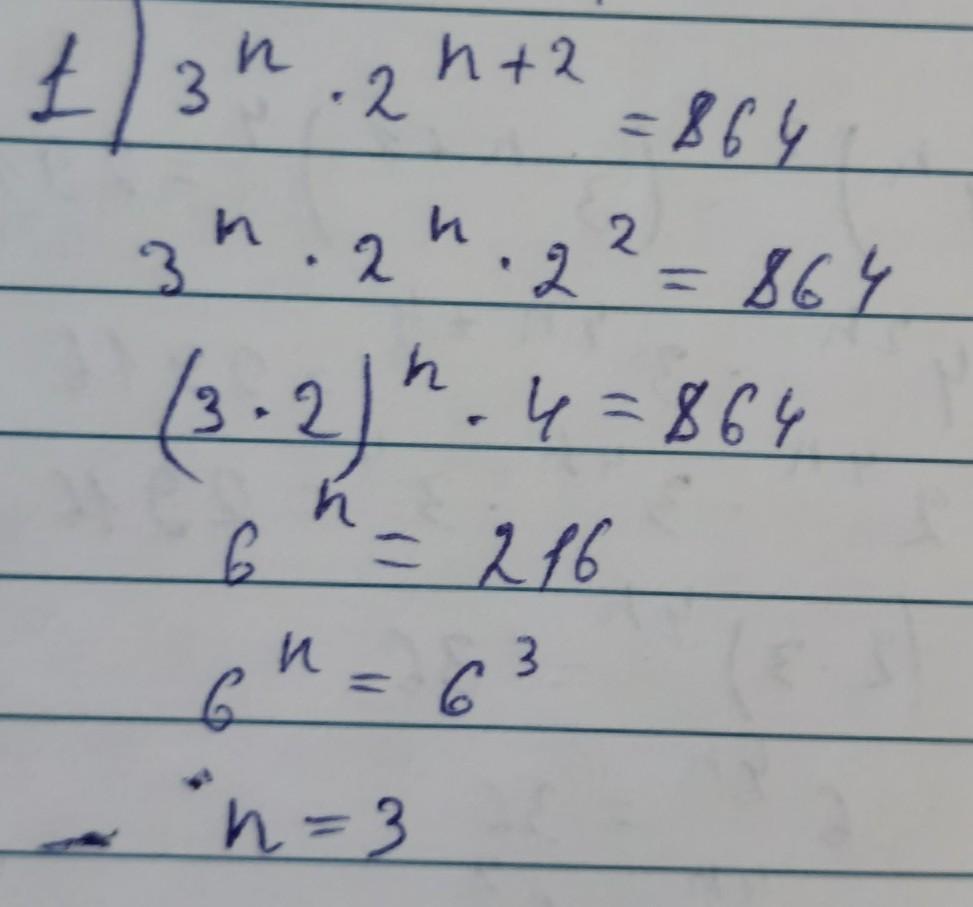 1) 3ⁿ · 2ⁿ⁺² = 864
3ⁿ · 2ⁿ · 2² = 864
(3 · 2)ⁿ · 4 = 864
6ⁿ = 216
6ⁿ = 6³
n = 3